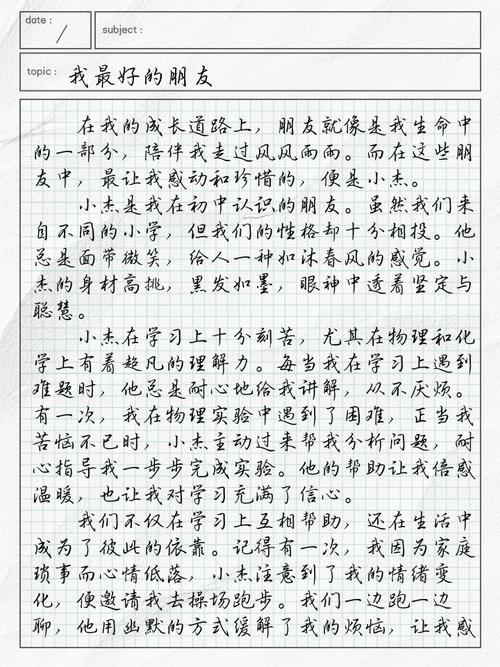 date :
subject :
topic : 我最好的朋友
在我的成长道路上，朋友就像是我生命中
的一部分，陪伴我走过风风雨雨。而在这些朋
友中，最让我感动和珍惜的，便是小杰。
小杰是我在初中认识的朋友。虽然我们来
自不同的小学，但我们的性格却十分相投。他
总是面带微笑，给人一种如沐春风的感觉。小
杰的身材高挑，黑发如墨，眼神中透着坚定与
聪慧。
小杰在学习上十分刻苦，尤其在物理和化
学上有着超凡的理解力。每当我在学习上遇到
难题时，他总是耐心地给我讲解，从不厌烦。
有一次，我在物理实验中遇到了困难，正当我
苦恼不已时，小杰主动过来帮我分析问题，耐
心指导我一步步完成实验。他的帮助让我倍感
温暖，也让我对学习充满了信心。
我们不仅在学习上互相帮助，还在生活中
成为了彼此的依靠。记得有一次，我因为家庭
琐事而心情低落，小杰注意到了我的情绪变
化，便邀请我去操场跑步。我们一边跑一边
聊，他用幽默的方式缓解了我的烦恼，让我感